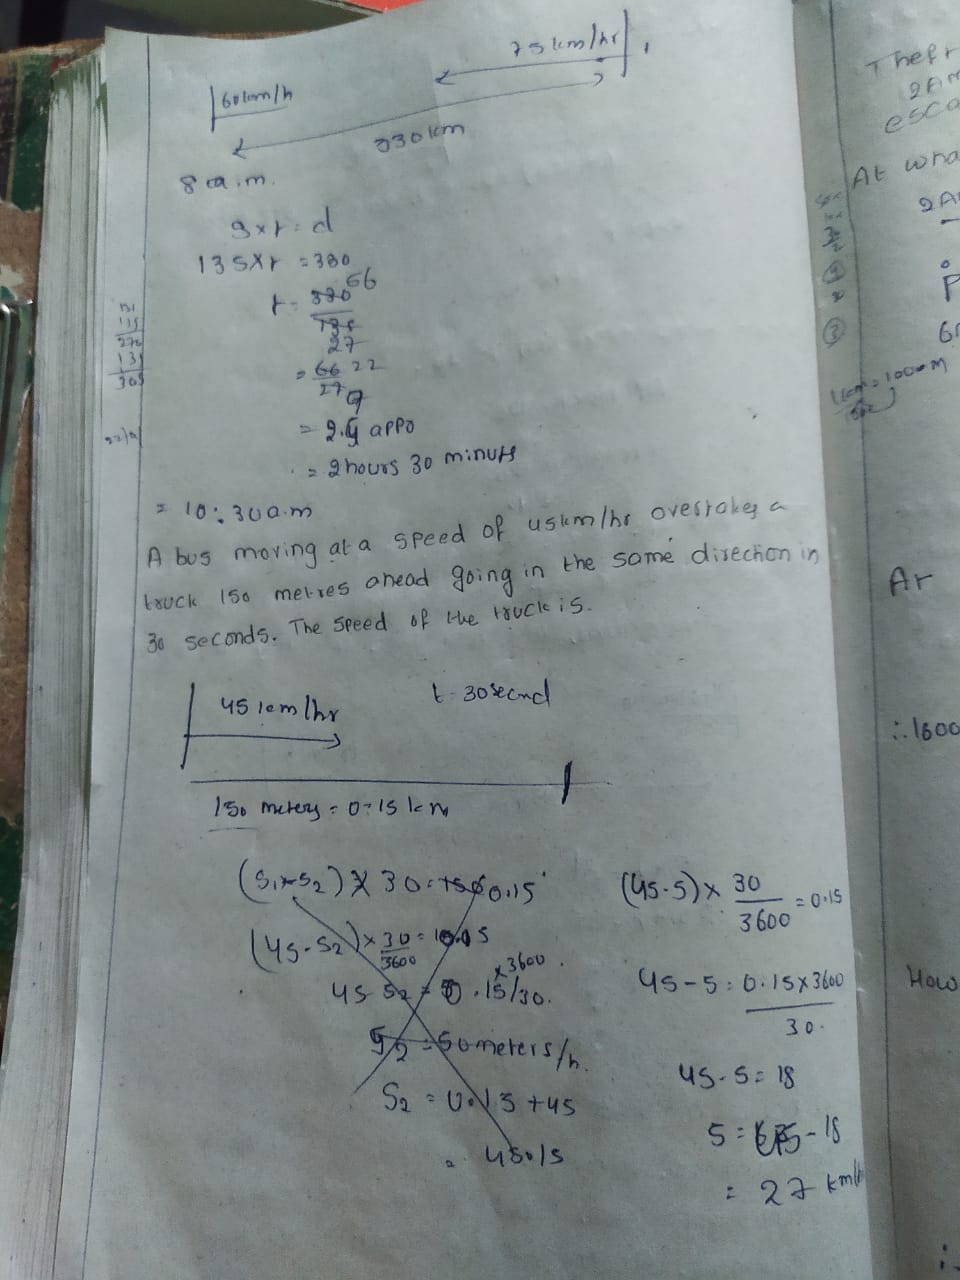 75km/hr
60km/h
330km
8 a.m.
s x t = d
135 x t = 330
t = 330 66
135
27
= 66 22
27 9
= 2.4 appo
= 2 hours 30 minuts
= 10:30 a.m
A bus moving at a speed of 45km/hr overtakes a
truck 150 metres ahead going in the same direction in
30 seconds. The speed of the truck is.
45 km/hr t - 30 second
150 meters = 0.15 km
(S1-S2) x 30 = 0.15
(45-S2) x 30 =
3600
x 3600
45 S2 = 0.15/30.
S2 = 50 meters/h.
S2 = 0.15 + 45
= 45.15
(45-S) x 30 = 0.15
3600
45 - S = 0.15 x 3600
30.
45 - S = 18
S = 45 - 18
= 27 km/h
Theft
2 AM
esca
At wha
2 A
1000 M
Ar
∴ 1600
How